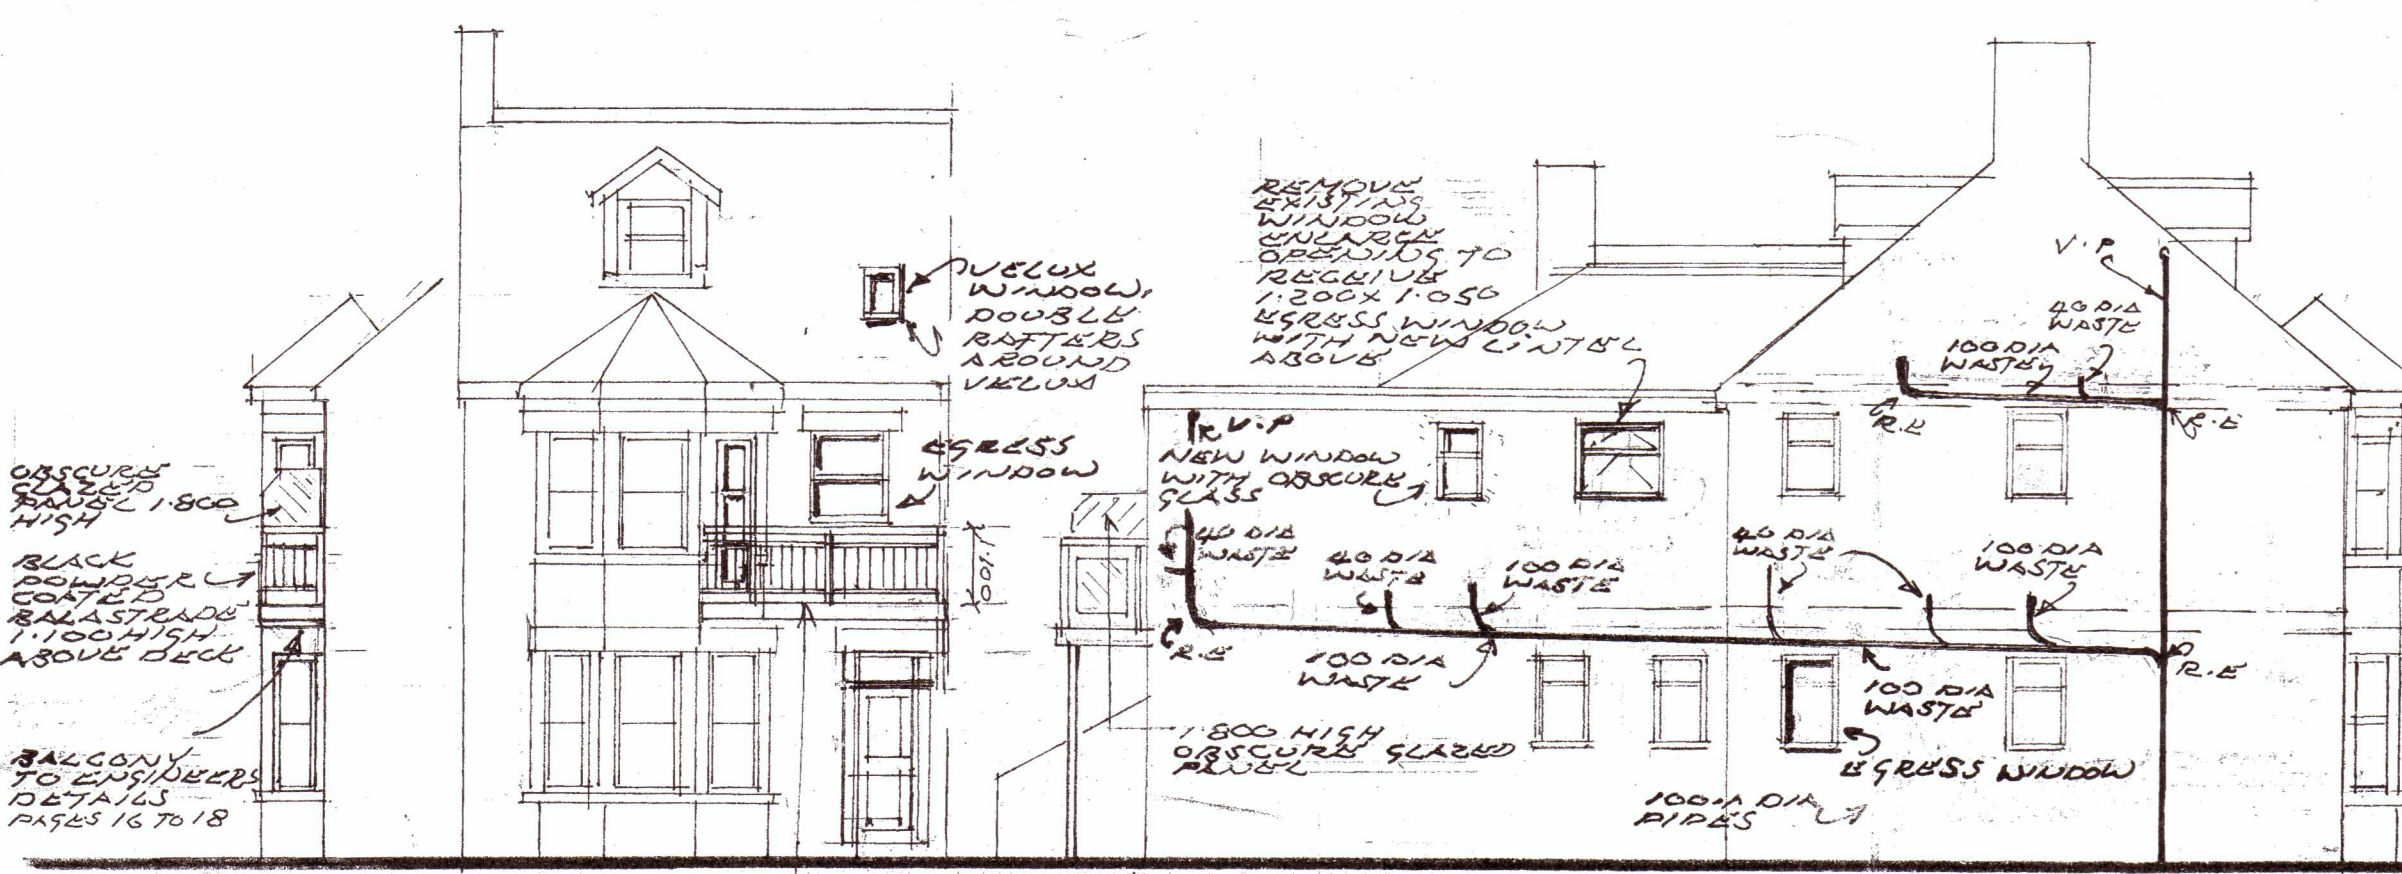 OBSCURE
GLAZED
PANEL 1·800
HIGH
BLACK
POWDER
COATED
BALASTRADE
1·100 HIGH
ABOVE DECK
BALCONY
TO ENGINEERS
DETAILS
PAGES 16 TO 18
VELUX
WINDOW,
DOUBLE
RAFTERS
AROUND
VELUX
EGRESS
WINDOW
1·100
REMOVE
EXISTING
WINDOW
ENLARGE
OPENING TO
RECEIVE
1·200 X 1·050
EGRESS WINDOW
WITH NEW LINTEL
ABOVE
V·P
NEW WINDOW
WITH OBSCURE
GLASS
40 DIA
WASTE
R.E
40 DIA
WASTE
100 DIA
WASTE
100 DIA
WASTE
1·800 HIGH
OBSCURE GLAZED
PANEL
V·P
40 DIA
WASTE
100 DIA
WASTE
R.E
R.E
40 DIA
WASTE
100 DIA
WASTE
R.E
100 DIA
WASTE
EGRESS WINDOW
DIA
PIPES